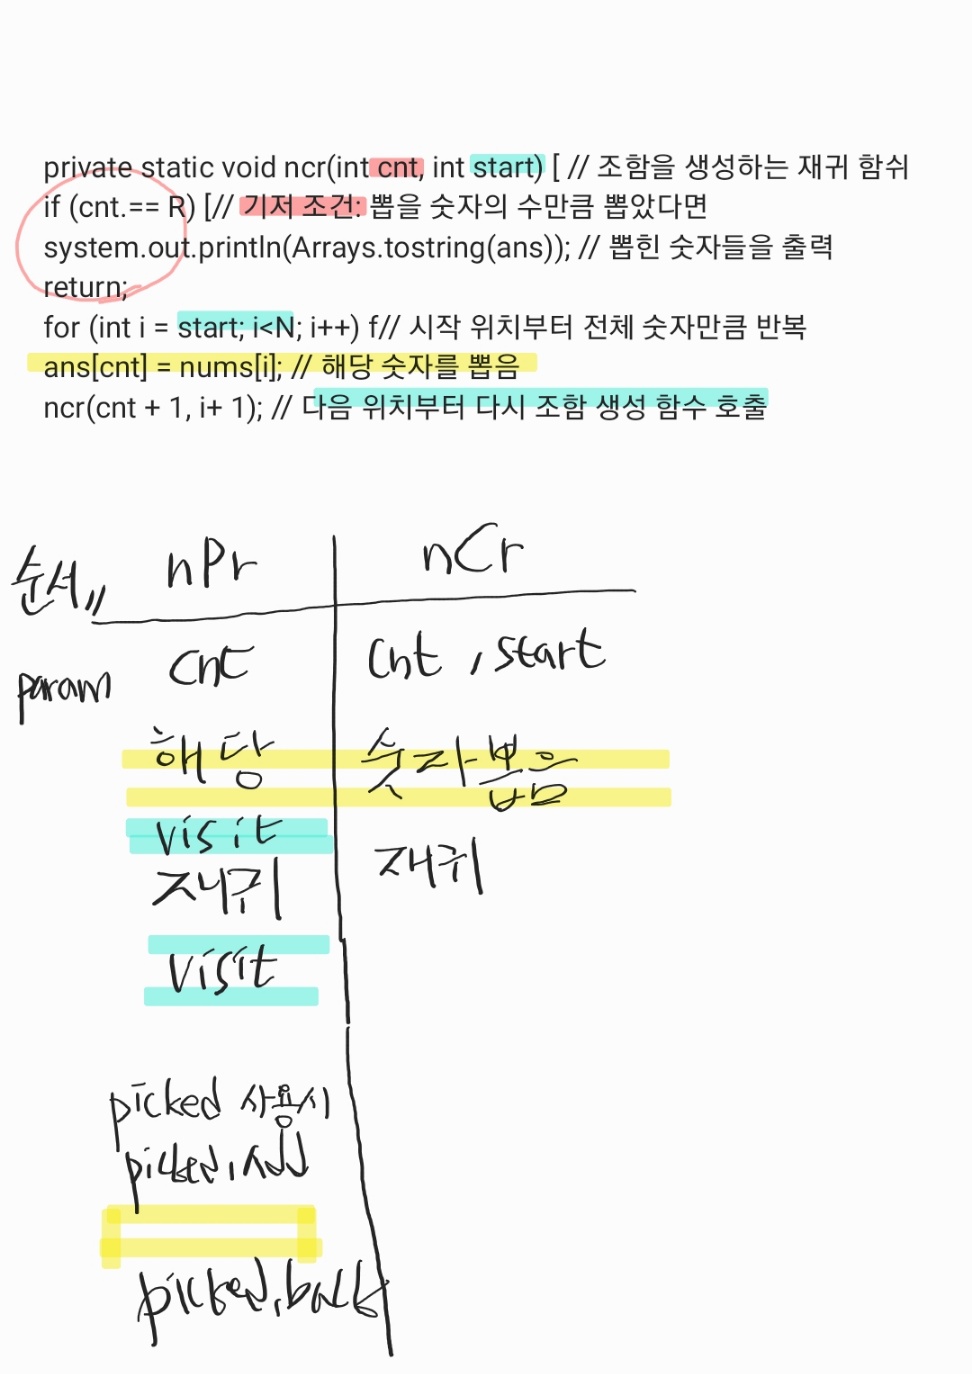 private static void ncr(int cnt, int start) [ // 조합을 생성하는 재귀 함쉬
if (cnt.== R) [// 기저 조건: 뽑을 숫자의 수만큼 뽑았다면
system.out.println(Arrays.tostring(ans)); // 뽑힌 숫자들을 출력
return;
for (int i = start; i<N; i++) f// 시작 위치부터 전체 숫자만큼 반복
ans[cnt] = nums[i]; // 해당 숫자를 뽑음
ncr(cnt + 1, i+ 1); // 다음 위치부터 다시 조합 생성 함수 호출
순서 nPr nCr
param cnt cnt, start
해당 숫자뽑음
visit
재귀 재귀
visit
picked 사용시
picked.add
picked.back